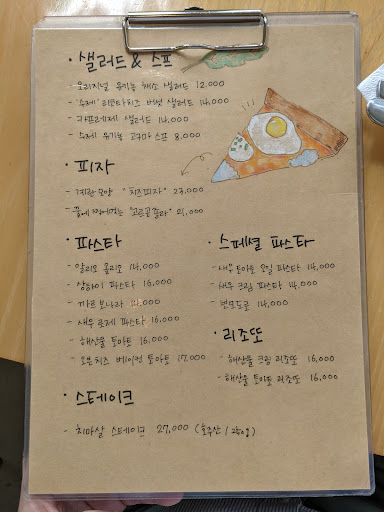 · 샐러드 & 스프
- 오리지널 유기농 채소 샐러드 12,000
- "수제" 리코타치즈 버섯 샐러드 14,000
- 카프레제 샐러드 14,000
- 수제 유기농 고구마 스프 8,000
· 피자
- 계란 모양 "치즈피자" 23,000
- 꿀에 찍어먹는 "고르곤졸라" 21,000
· 파스타
- 알리오 올리오 14,000
- 상하이 파스타 16,000
- 까르보나라 14,000
- 새우 로제 파스타 16,000
- 해산물 토마토 16,000
- 오븐치즈 베이컨 토마토 17,000
· 스페셜 파스타
- 새우 토마토 오일 파스타 14,000
- 새우 크림 파스타 14,000
- 뽀모도로 14,000
· 리조또
- 해산물 크림 리조또 16,000
- 해산물 토마토 리조또 16,000
· 스테이크
- 치마살 스테이크 27,000 (호주산 / 250g)